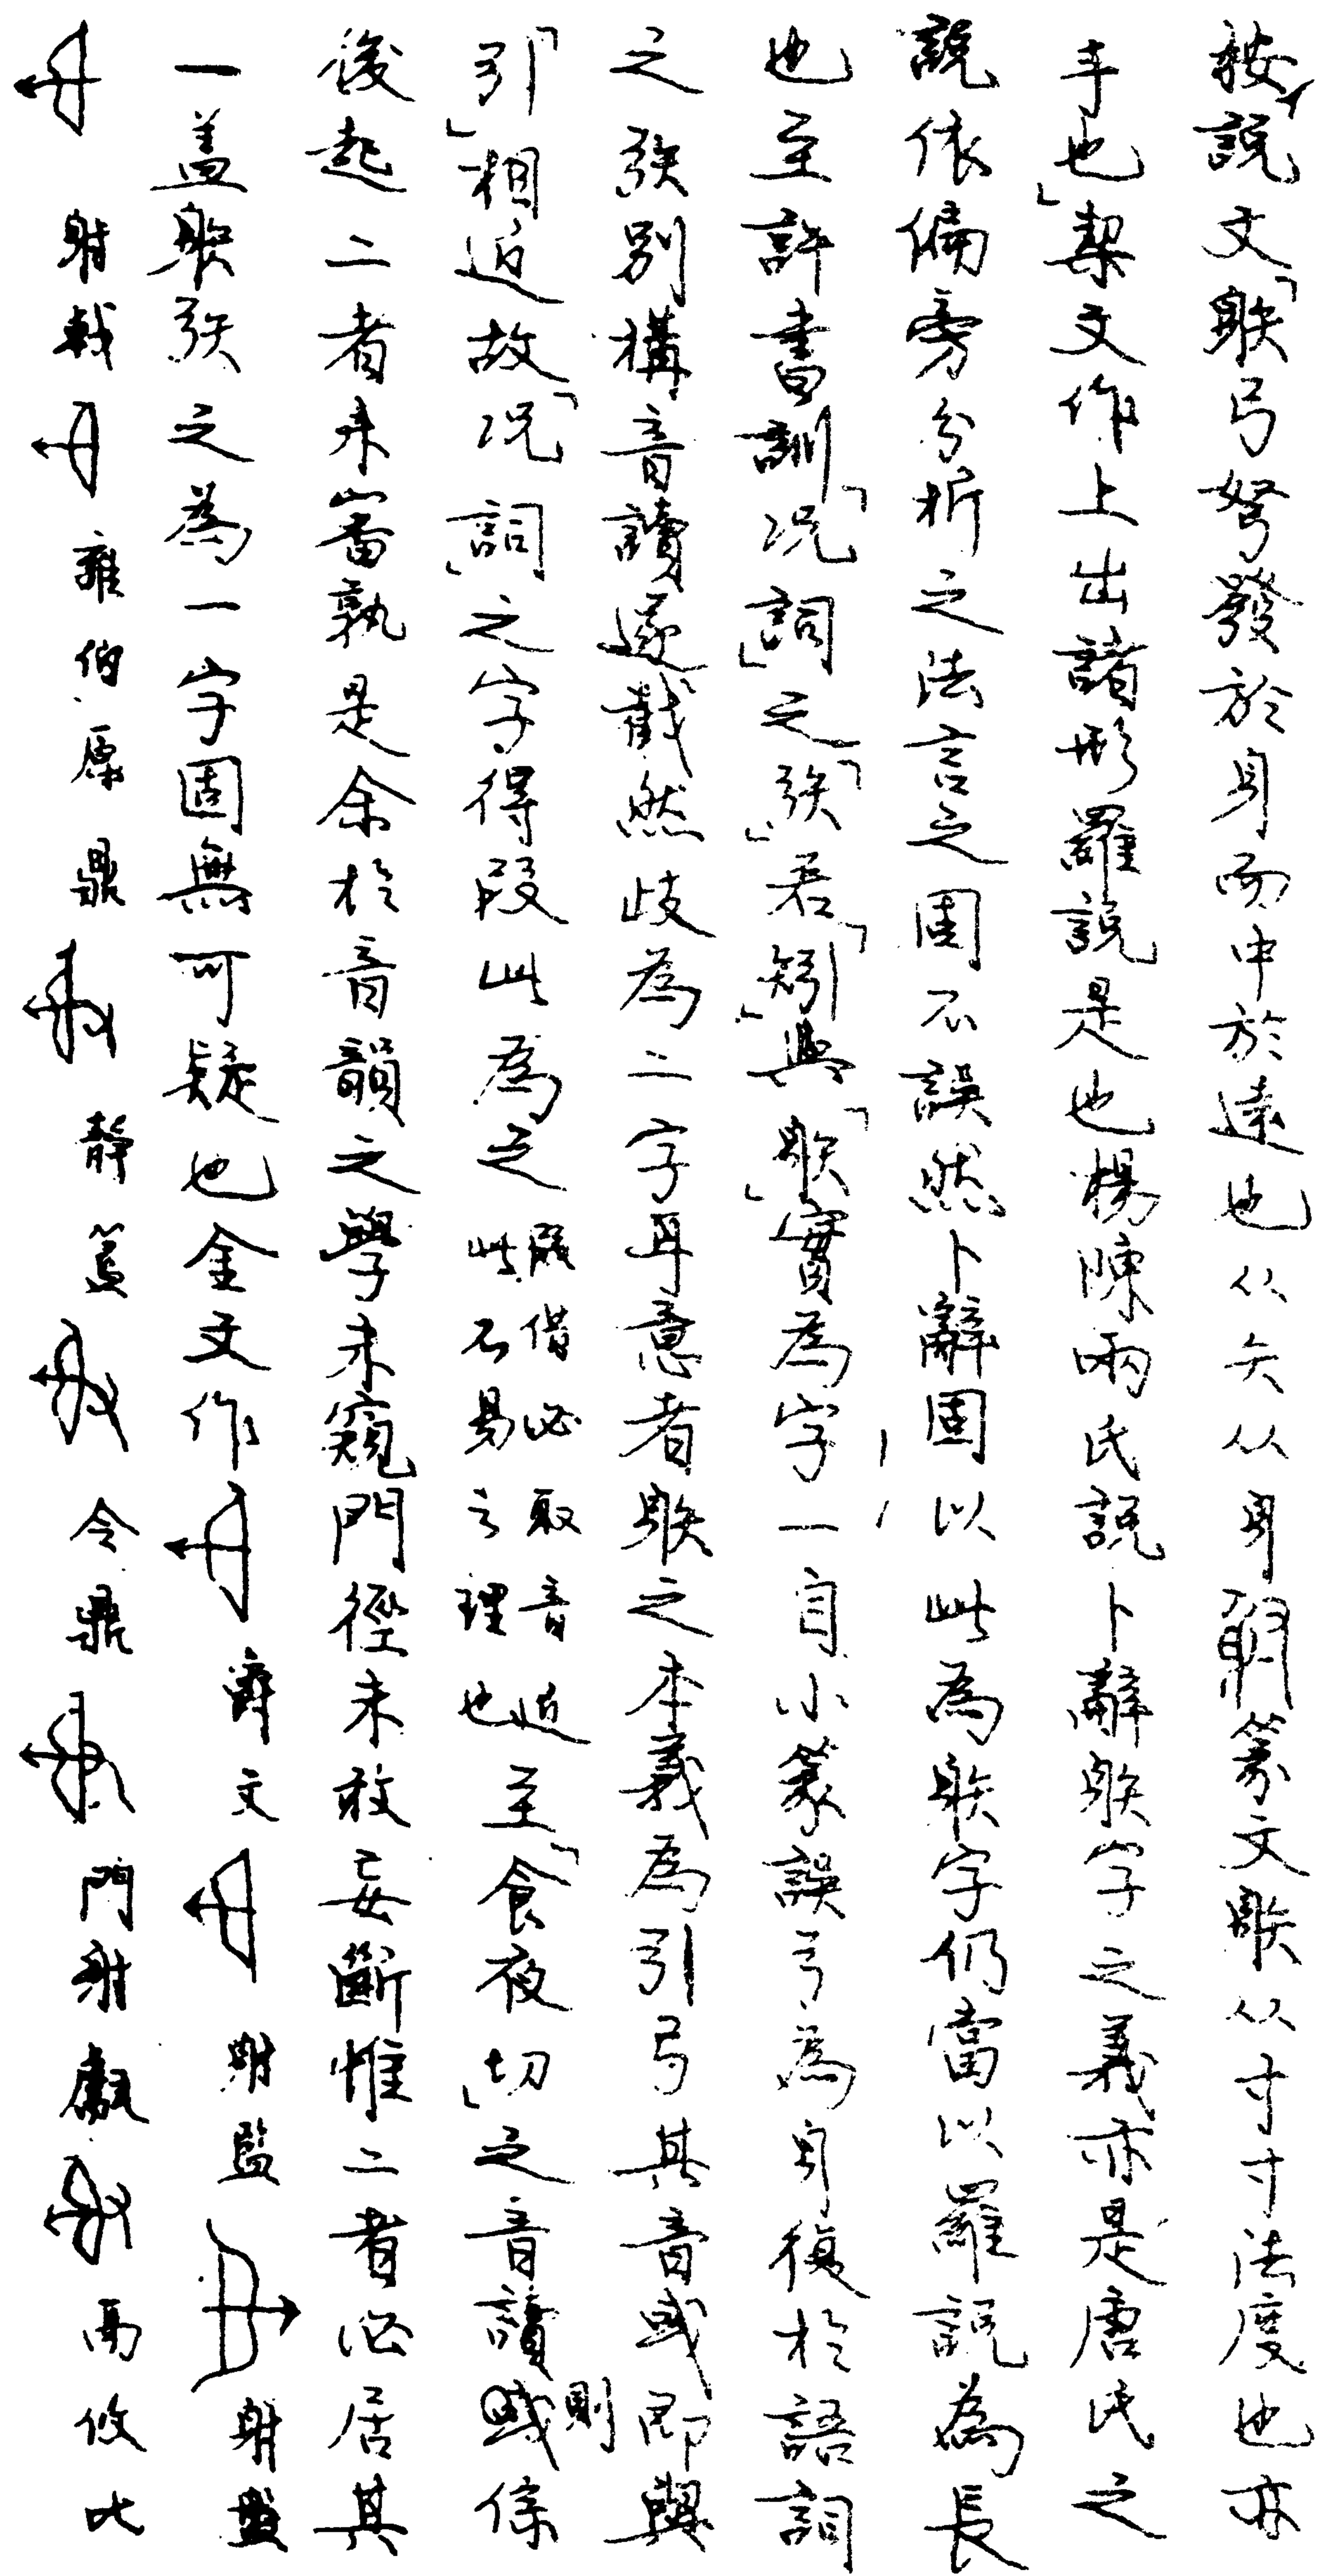 按說文「䠶弓弩發於身而中於遠也从矢从身䠶篆文䠶从寸寸法度也亦
手也」栔文作上出諸形羅說是也楊陳兩氏說卜辭䠶字之義亦是唐氏之
說依偏旁分析之法言之固不誤然卜辭固以此為䠶字仍當以羅說為長
也至許書訓「況詞」之「㢭」若「矧」與「䠶」實為字一自小篆誤弓為身復於語詞
之㢭別構音讀遂截然歧為二字耳意者䠶之本義為引弓其音或即與
「引」相近故「況詞」之字得叚此為之 叚借必取音近此不易之理也 至「食夜切」之音讀則或係
後起二者未審孰是余於音韻之學未窺門徑未敢妄斷惟二者必居其
一蓋䠶㢭之為一字固無可疑也金文作 爵文 射監 射盤
射戟 雍伯原鼎 靜簋 令鼎 門射甗 鬲攸比